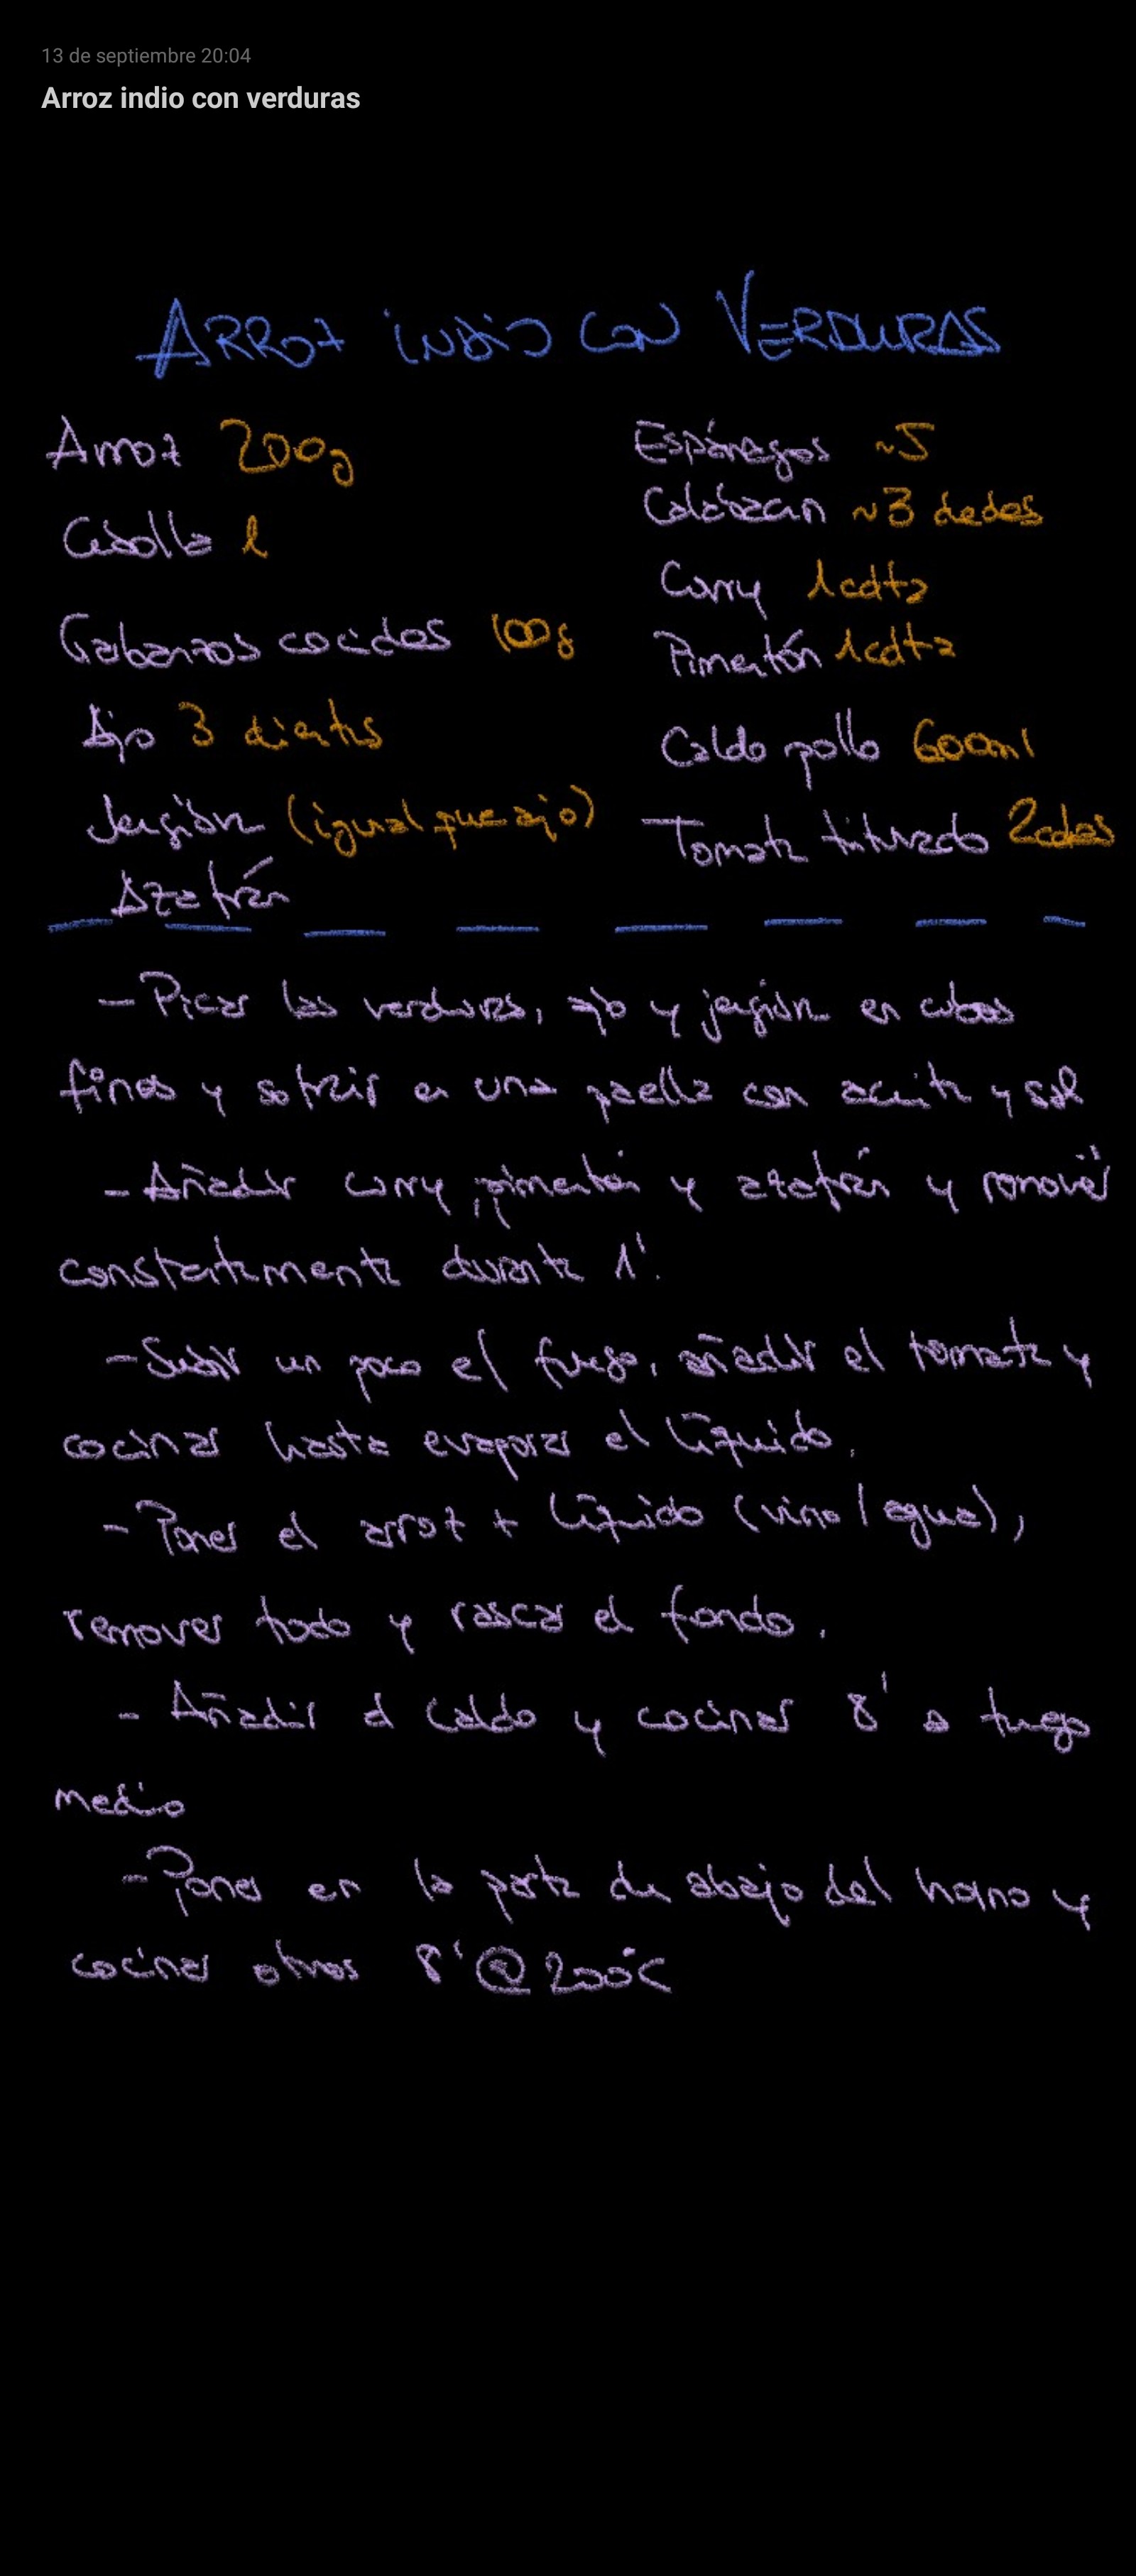 13 de septiembre 20:04
Arroz indio con verduras
ARROZ INDIO CON VERDURAS
Arroz 200g
Cebolla 1
Garbanzos cocidos 100g
Ajo 3 dientes
Jengibre (igual que ajo)
Azafrán
Espárragos ~5
Calabacín ~3 dedos
Curry 1cdta
Pimentón 1cdta
Caldo pollo 600ml
Tomate triturado 2cdas
- Picar las verduras, ajo y jengibre en cubos
finos y sofreir en una paella con aceite y sal
- Añadir curry, pimentón y azafrán y remover
constantemente durante 1'.
- Subir un poco el fuego, añadir el tomate y
cocinar hasta evaporar el líquido.
- Poner el arroz + líquido (vino / agua),
remover todo y rascar el fondo.
- Añadir el caldo y cocinar 8' a fuego
medio
- Poner en la parte de abajo del horno y
cocinar otros 8' @ 200°C